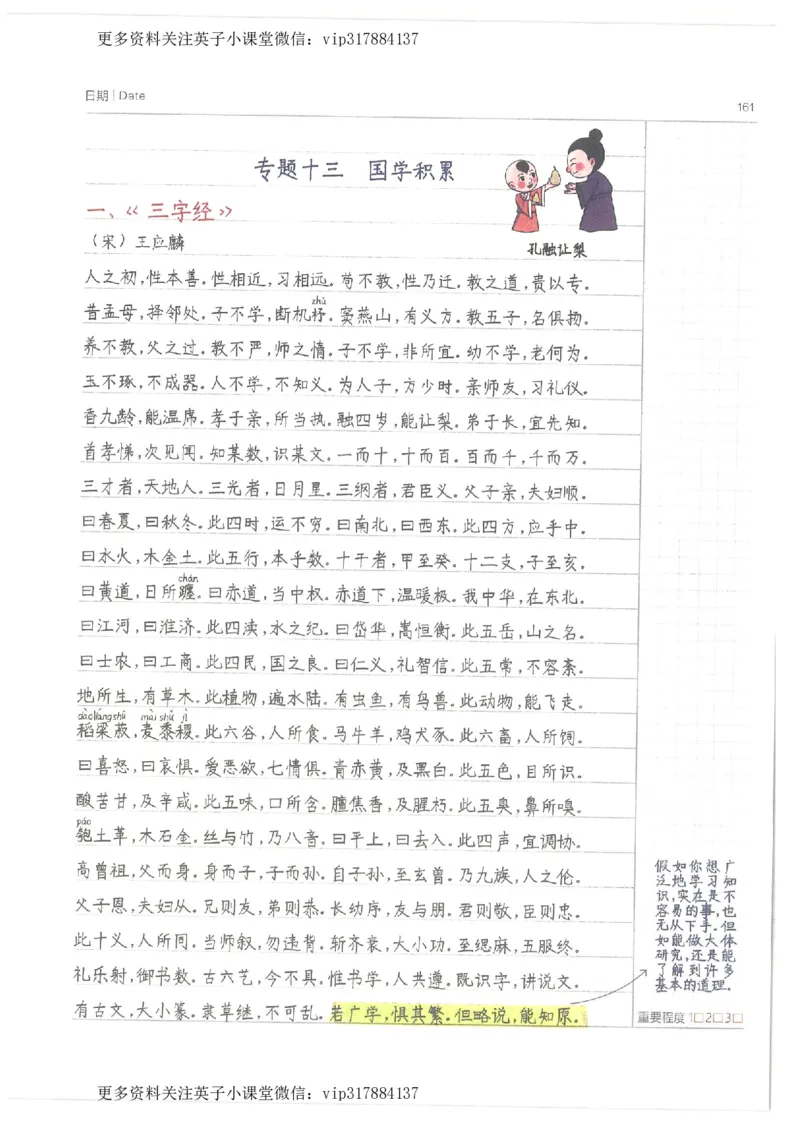 更多资料关注英子小课堂微信：vip317884137
日期 | Date
161
专题十三 国学积累
一、《三字经》
（宋）王应麟
孔融让梨
人之初,性本善.性相近,习相远.苟不教,性乃迁.教之道,贵以专.
zhù
昔孟母,择邻处.子不学,断机杼.窦燕山,有义方.教五子,名俱扬.
养不教,父之过.教不严,师之惰.子不学,非所宜.幼不学,老何为.
玉不琢,不成器.人不学,不知义.为人子,方少时.亲师友,习礼仪.
香九龄,能温席.孝于亲,所当执.融四岁,能让梨.弟于长,宜先知.
首孝悌,次见闻.知某数,识某文.一而十,十而百.百而千,千而万.
三才者,天地人.三光者,日月星.三纲者,君臣义.父子亲,夫妇顺.
曰春夏,曰秋冬.此四时,运不穷.曰南北,曰西东.此四方,应乎中.
曰水火,木金土.此五行,本乎数.十干者,甲至癸.十二支,子至亥.
chán
曰黄道,日所躔.曰赤道,当中权.赤道下,温暖极.我中华,在东北.
曰江河,曰淮济.此四渎,水之纪.曰岱华,嵩恒衡.此五岳,山之名.
曰士农,曰工商.此四民,国之良.曰仁义,礼智信.此五常,不容紊.
地所生,有草木.此植物,遍水陆.有虫鱼,有鸟兽.此动物,能飞走.
dào liáng shū mài shǔ jì
稻粱菽,麦黍稷.此六谷,人所食.马牛羊,鸡犬豕.此六畜,人所饲.
曰喜怒,曰哀惧.爱恶欲,七情俱.青赤黄,及黑白.此五色,目所识.
酸苦甘,及辛咸.此五味,口所含.膻焦香,及腥朽.此五臭,鼻所嗅.
páo
匏土革,木石金.丝与竹,乃八音.曰平上,曰去入.此四声,宜调协.
高曾祖,父而身.身而子,子而孙.自子孙,至玄曾.乃九族,人之伦.
父子恩,夫妇从.兄则友,弟则恭.长幼序,友与朋.君则敬,臣则忠.
此十义,人所同.当师叙,勿违背.斩齐衰,大小功.至缌麻,五服终.
礼乐射,御书数.古六艺,今不具.惟书学,人共遵.既识字,讲说文.
有古文,大小篆.隶草继,不可乱.若广学,惧其繁.但略说,能知原.
假如你想广
泛地学习知
识,实在是不
容易的事,也
无从下手.但
如能做大体
研究,还是能
了解到许多
基本的道理.
重要程度 1□2□3□
更多资料关注英子小课堂微信：vip317884137